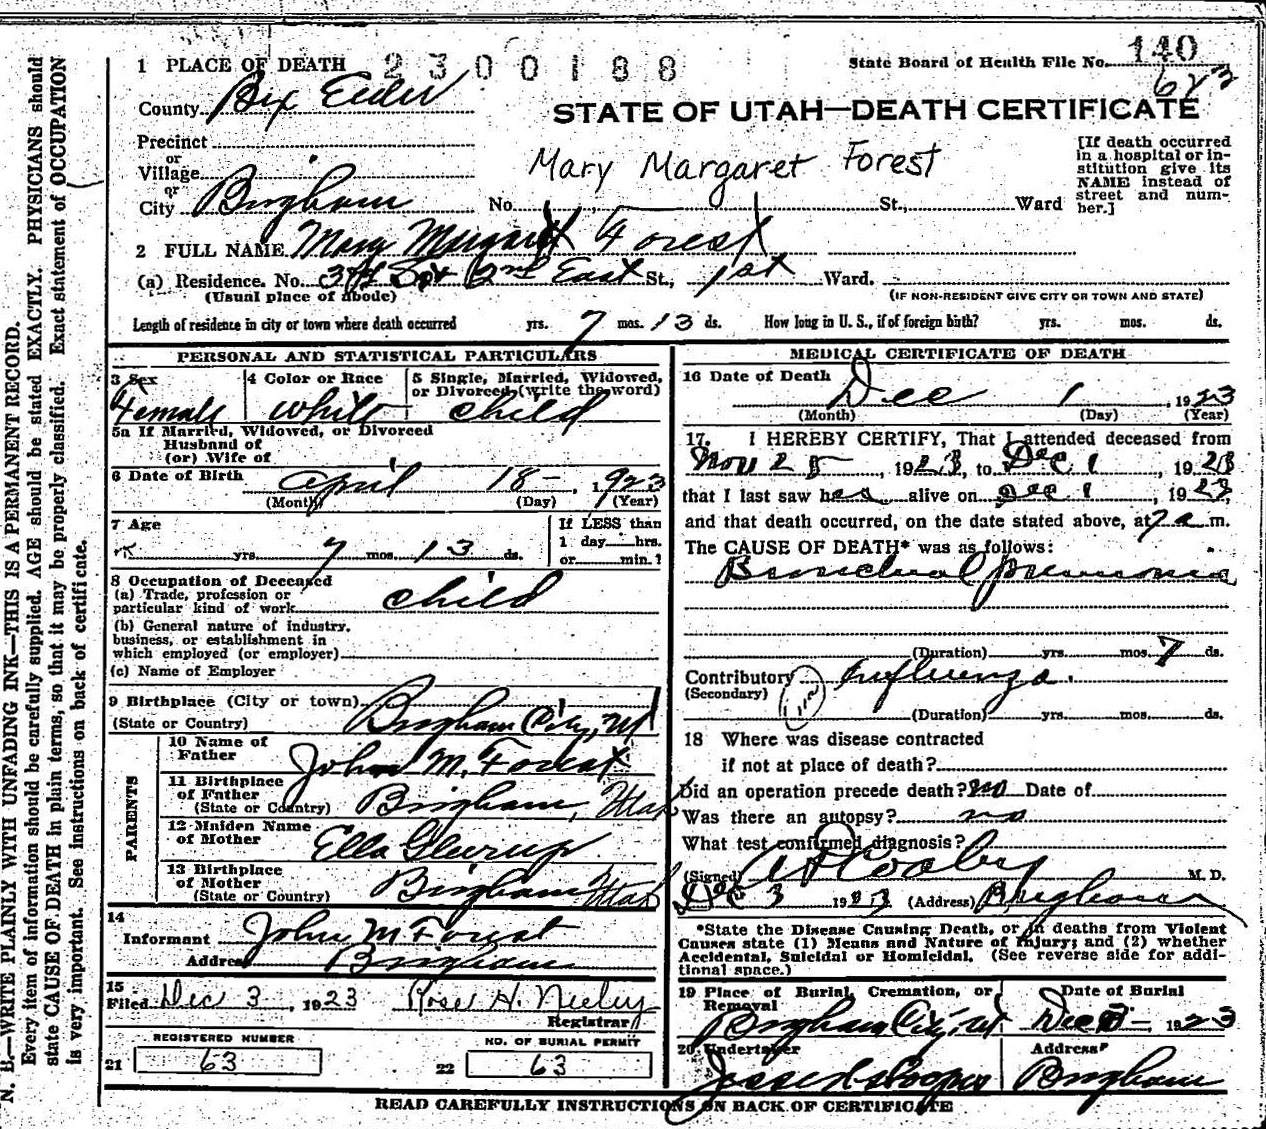 1 PLACE OF DEATH 2300188
State Board of Health File No. 140
623
County Box Elder
STATE OF UTAH—DEATH CERTIFICATE
Precinct
or
Village
or
City Brigham
Mary Margaret Forest
[If death occurred in a hospital or institution give its NAME instead of street and number.]
No. St., Ward
2 FULL NAME Mary Margaret Forest
(a) Residence. No. 2nd East St., 1st Ward.
(Usual place of abode) (IF NON-RESIDENT GIVE CITY OR TOWN AND STATE)
Length of residence in city or town where death occurred yrs. 7 mos. 13 ds. How long in U. S., if of foreign birth? yrs. mos. ds.
PERSONAL AND STATISTICAL PARTICULARS
3 Sex
Female
4 Color or Race
White
5 Single, Married, Widowed, or Divorced (write the word)
child
5a If Married, Widowed, or Divorced
Husband of
(or) Wife of
6 Date of Birth April 18 – , 1923
(Month) (Day) (Year)
7 Age
yrs. 7 mos. 13 ds.
If LESS than
1 day hrs.
or min.?
8 Occupation of Deceased
(a) Trade, profession or
particular kind of work child
(b) General nature of industry,
business, or establishment in
which employed (or employer)
(c) Name of Employer
9 Birthplace (City or town)
(State or Country) Brigham City, Ut
PARENTS
10 Name of
Father John M. Forest
11 Birthplace
of Father
(State or Country) Brigham, Utah
12 Maiden Name
of Mother Ella
13 Birthplace
of Mother
(State or Country) Brigham Utah
14
Informant John M Forest
Address Brigham
15
Filed Dec 3, 1923 Rose H. Neeley
Registrar
REGISTERED NUMBER
21 63
NO. OF BURIAL PERMIT
22 63
MEDICAL CERTIFICATE OF DEATH
16 Date of Death Dec 1, 1923
(Month) (Day) (Year)
17. I HEREBY CERTIFY, That I attended deceased from
Nov 25, 1923, to Dec 1, 1923
that I last saw her alive on Dec 1, 1923
and that death occurred, on the date stated above, at 7 a m.
The CAUSE OF DEATH* was as follows:
Bronchial pneumonia
(Duration) yrs. mos. 7 ds.
Contributory Influenza.
(Secondary)
(Duration) yrs. mos. ds.
18 Where was disease contracted
if not at place of death?
Did an operation precede death? no Date of
Was there an autopsy? no
What test confirmed diagnosis?
(Signed) Cooley M. D.
Dec 3 1923 (Address) Brigham
*State the Disease Causing Death, or in deaths from Violent
Causes state (1) Means and Nature of Injury; and (2) whether
Accidental, Suicidal or Homicidal. (See reverse side for addi-
tional space.)
19 Place of Burial, Cremation, or
Removal
Brigham City, Ut
Date of Burial
Dec 1923
20 Undertaker
Address
Brigham
READ CAREFULLY INSTRUCTIONS ON BACK OF CERTIFICATE
N. B.—WRITE PLAINLY WITH UNFADING INK—THIS IS A PERMANENT RECORD.
Every item of information should be carefully supplied. AGE should be stated EXACTLY. PHYSICIANS should
state CAUSE OF DEATH in plain terms, so that it may be properly classified. Exact statement of OCCUPATION
is very important. See instructions on back of certificate.